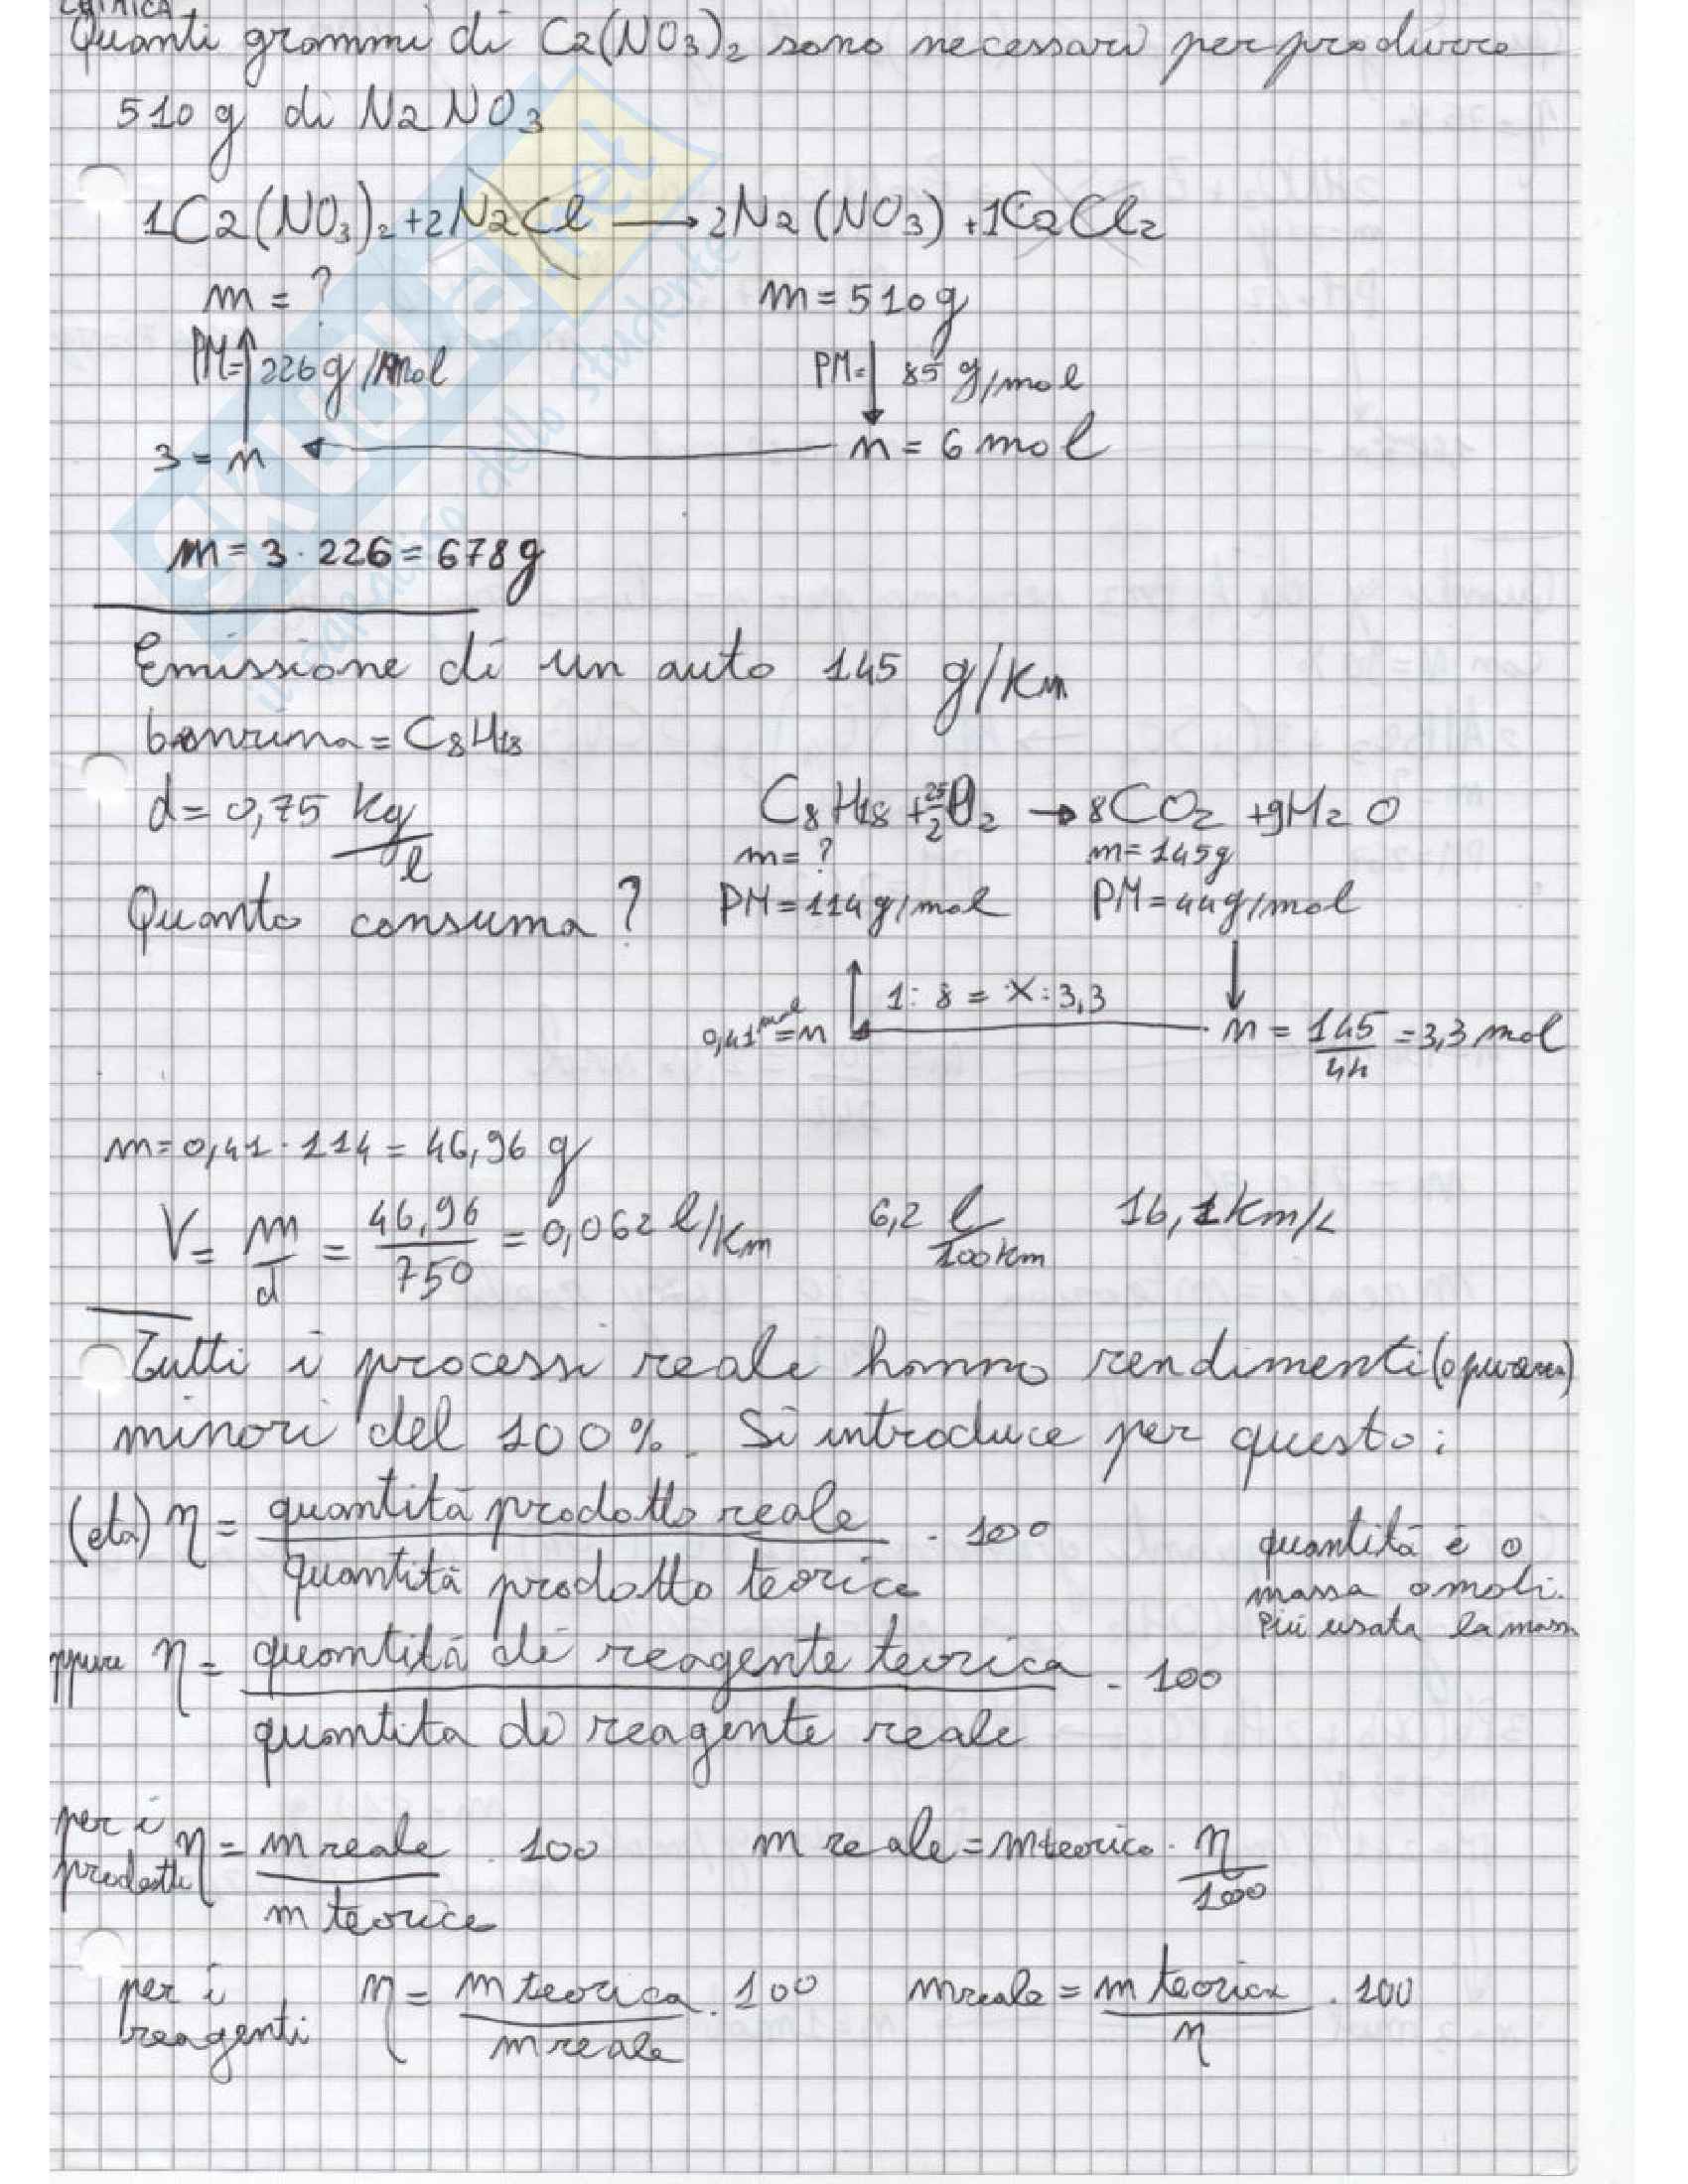 CHIMICA
Quanti grammi di Ca(NO3)2 sono necessari per produrre
510 g di NaNO3
1Ca(NO3)2 + 2NaCl → 2Na(NO3) + 1CaCl2
m = ? m = 510 g
PM = 226 g/mol PM = 85 g/mol
3 = n ← n = 6 mol
m = 3 · 226 = 678 g
Emissione di un auto 145 g/Km
benzina = C8H18
d = 0,75 Kg/l C8H18 + 25/2 O2 → 8CO2 + 9H2O
m = ? m = 145g
Quanto consuma? PM = 114 g/mol PM = 44 g/mol
1 : 8 = X : 3,3
0,41 mol = n ← n = 145/44 = 3,3 mol
m = 0,41 · 114 = 46,96 g
V = m/d = 46,96/750 = 0,062 l/Km 6,2 l/100 Km 16,1 Km/L
Tutti i processi reale hanno rendimenti (o purezza)
minori del 100%. Si introduce per questo:
(eta) η = quantità prodotto reale / quantità prodotto teorico · 100
quantità è o
massa o moli.
Più usata la massa
oppure η = quantità di reagente teorica / quantita di reagente reale · 100
per i prodotti η = m reale / m teorico · 100 m reale = m teorico · η/100
per i reagenti η = m teorica / m reale · 100 m reale = m teorica / η · 100
SKUOLA.net
il paradiso dello studente